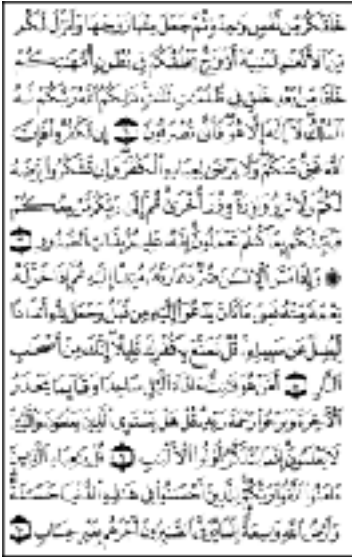 خَلَقَكُم مِّن نَّفْسٍ وَٰحِدَةٍ ثُمَّ جَعَلَ مِنْهَا زَوْجَهَا وَأَنزَلَ لَكُم
مِّنَ ٱلْأَنْعَٰمِ ثَمَٰنِيَةَ أَزْوَٰجٍ يَخْلُقُكُمْ فِى بُطُونِ أُمَّهَٰتِكُمْ
خَلْقًا مِّنۢ بَعْدِ خَلْقٍ فِى ظُلُمَٰتٍ ثَلَٰثٍ ذَٰلِكُمُ ٱللَّهُ رَبُّكُمْ لَهُ
ٱلْمُلْكُ لَآ إِلَٰهَ إِلَّا هُوَ فَأَنَّىٰ تُصْرَفُونَ ٦ إِن تَكْفُرُوا۟ فَإِنَّ
ٱللَّهَ غَنِىٌّ عَنكُمْ وَلَا يَرْضَىٰ لِعِبَادِهِ ٱلْكُفْرَ وَإِن تَشْكُرُوا۟ يَرْضَهُ
لَكُمْ وَلَا تَزِرُ وَازِرَةٌ وِزْرَ أُخْرَىٰ ثُمَّ إِلَىٰ رَبِّكُم مَّرْجِعُكُمْ
فَيُنَبِّئُكُم بِمَا كُنتُمْ تَعْمَلُونَ إِنَّهُۥ عَلِيمٌۢ بِذَاتِ ٱلصُّدُورِ ٧
۞ وَإِذَا مَسَّ ٱلْإِنسَٰنَ ضُرٌّ دَعَا رَبَّهُۥ مُنِيبًا إِلَيْهِ ثُمَّ إِذَا خَوَّلَهُۥ
نِعْمَةً مِّنْهُ نَسِىَ مَا كَانَ يَدْعُوٓا۟ إِلَيْهِ مِن قَبْلُ وَجَعَلَ لِلَّهِ أَندَادًا
لِّيُضِلَّ عَن سَبِيلِهِۦ قُلْ تَمَتَّعْ بِكُفْرِكَ قَلِيلًا إِنَّكَ مِنْ أَصْحَٰبِ
ٱلنَّارِ ٨ أَمَّنْ هُوَ قَٰنِتٌ ءَانَآءَ ٱلَّيْلِ سَاجِدًا وَقَآئِمًا يَحْذَرُ
ٱلْءَاخِرَةَ وَيَرْجُوا۟ رَحْمَةَ رَبِّهِۦ قُلْ هَلْ يَسْتَوِى ٱلَّذِينَ يَعْلَمُونَ وَٱلَّذِينَ
لَا يَعْلَمُونَ إِنَّمَا يَتَذَكَّرُ أُو۟لُوا۟ ٱلْأَلْبَٰبِ ٩ قُلْ يَٰعِبَادِ ٱلَّذِينَ
ءَامَنُوا۟ ٱتَّقُوا۟ رَبَّكُمْ لِلَّذِينَ أَحْسَنُوا۟ فِى هَٰذِهِ ٱلدُّنْيَا حَسَنَةٌ
وَأَرْضُ ٱللَّهِ وَٰسِعَةٌ إِنَّمَا يُوَفَّى ٱلصَّٰبِرُونَ أَجْرَهُم بِغَيْرِ حِسَابٍ ١٠